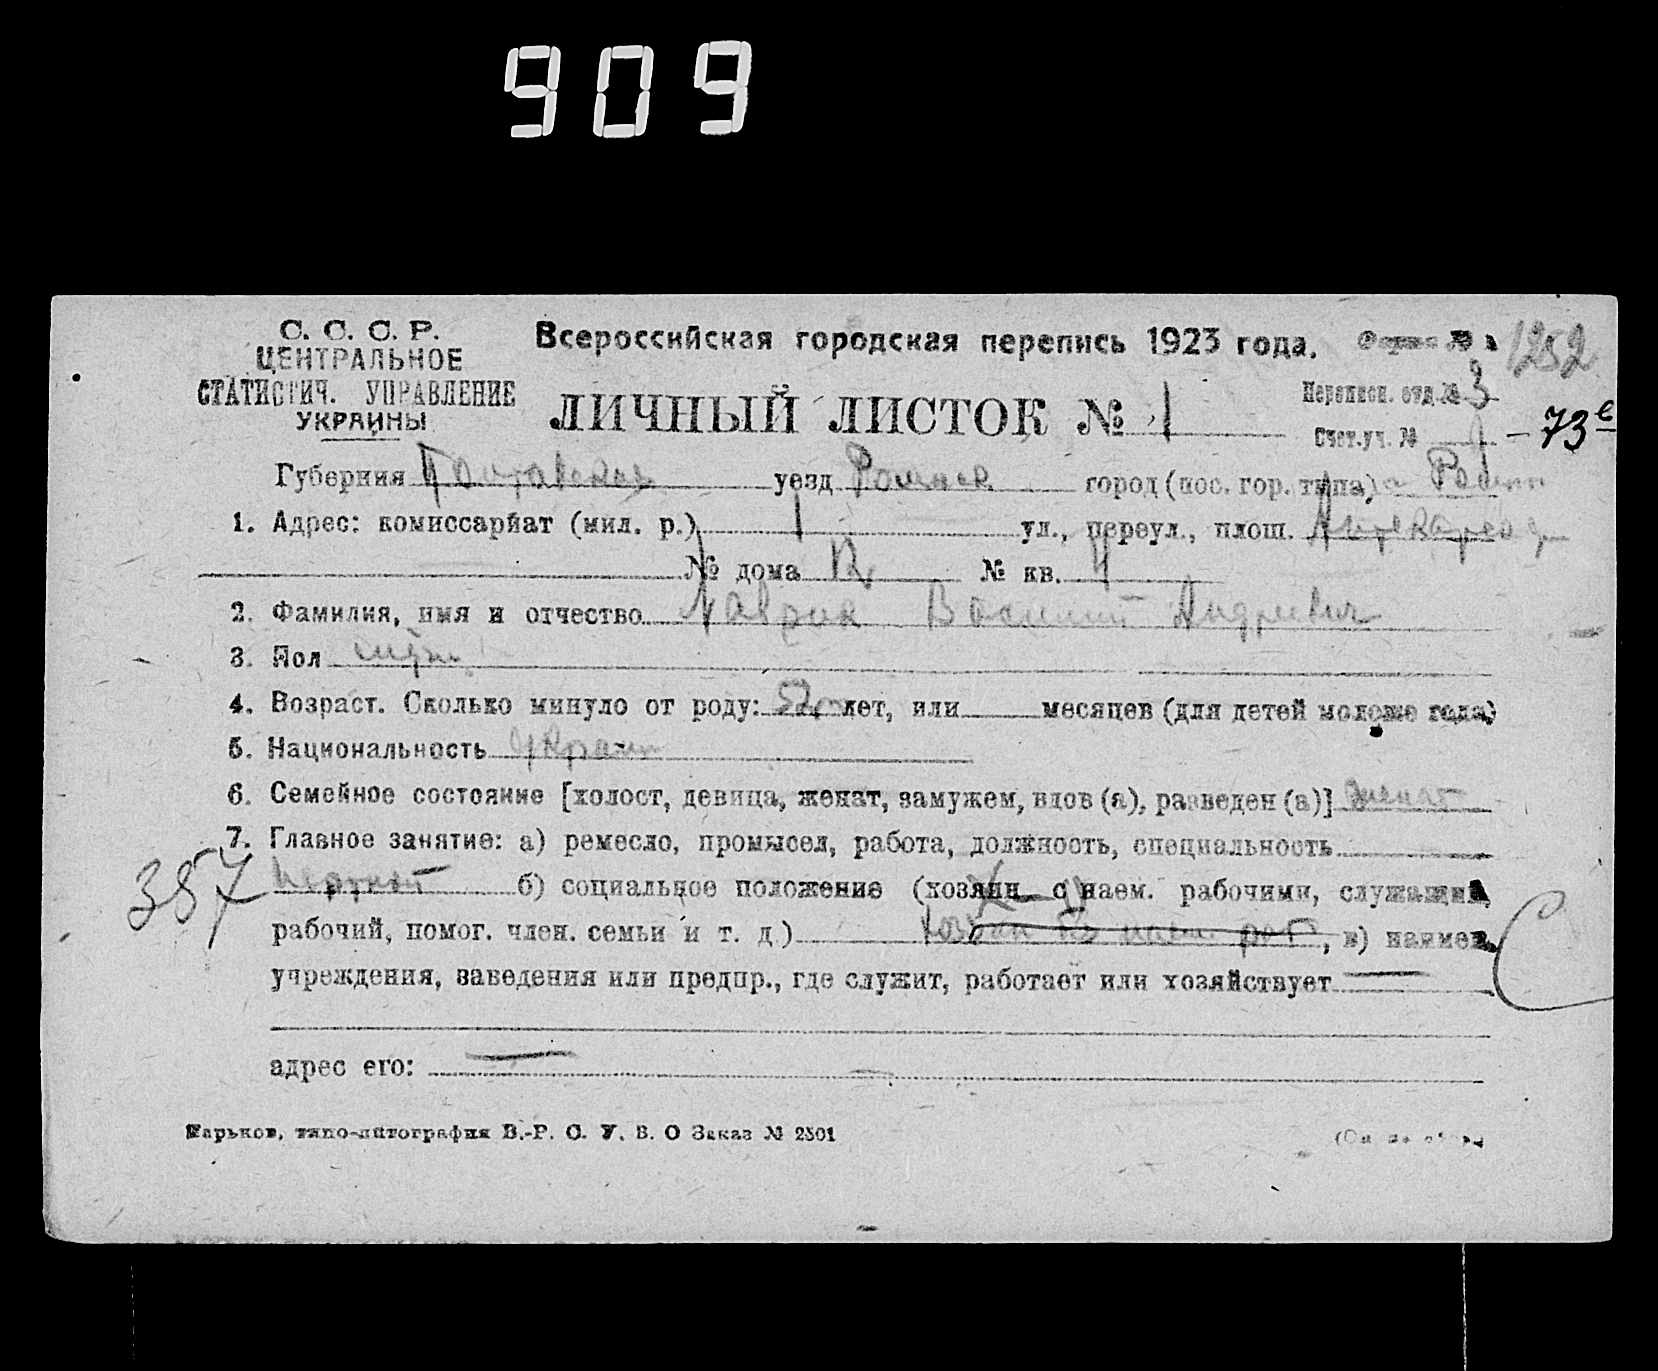 909
С. С. С. Р.
ЦЕНТРАЛЬНОЕ
СТАТИСТИЧ. УПРАВЛЕНИЕ
УКРАИНЫ
Всероссийская городская перепись 1923 года.
Форма № 1252
ЛИЧНЫЙ ЛИСТОК № 1
Переписн. отд. № 3
Счет. уч. № – 73
Губерния Полтавская уезд Роменск город (пос. гор. типа) Ромны
1. Адрес: комиссариат (мил. р.) 1 ул., переул., площ.
№ дома 12 № кв.
2. Фамилия, имя и отчество Лаврик Василий Андреевич
3. Пол муж
4. Возраст. Сколько минуло от роду: 52 лет, или месяцев (для детей моложе года)
5. Национальность украин
6. Семейное состояние [холост, девица, женат, замужем, вдов (а), разведен (а)] женат
7. Главное занятие: а) ремесло, промысел, работа, должность, специальность
357 б) социальное положение (хозяин с наем. рабочими, служащий,
рабочий, помог. член. семьи и т. д.) хозяин без наем. раб, в) наимен.
учреждения, заведения или предпр., где служит, работает или хозяйствует —
адрес его: —
Харьков, типо-литография В.-Р. С. У. В. О Заказ № 2501